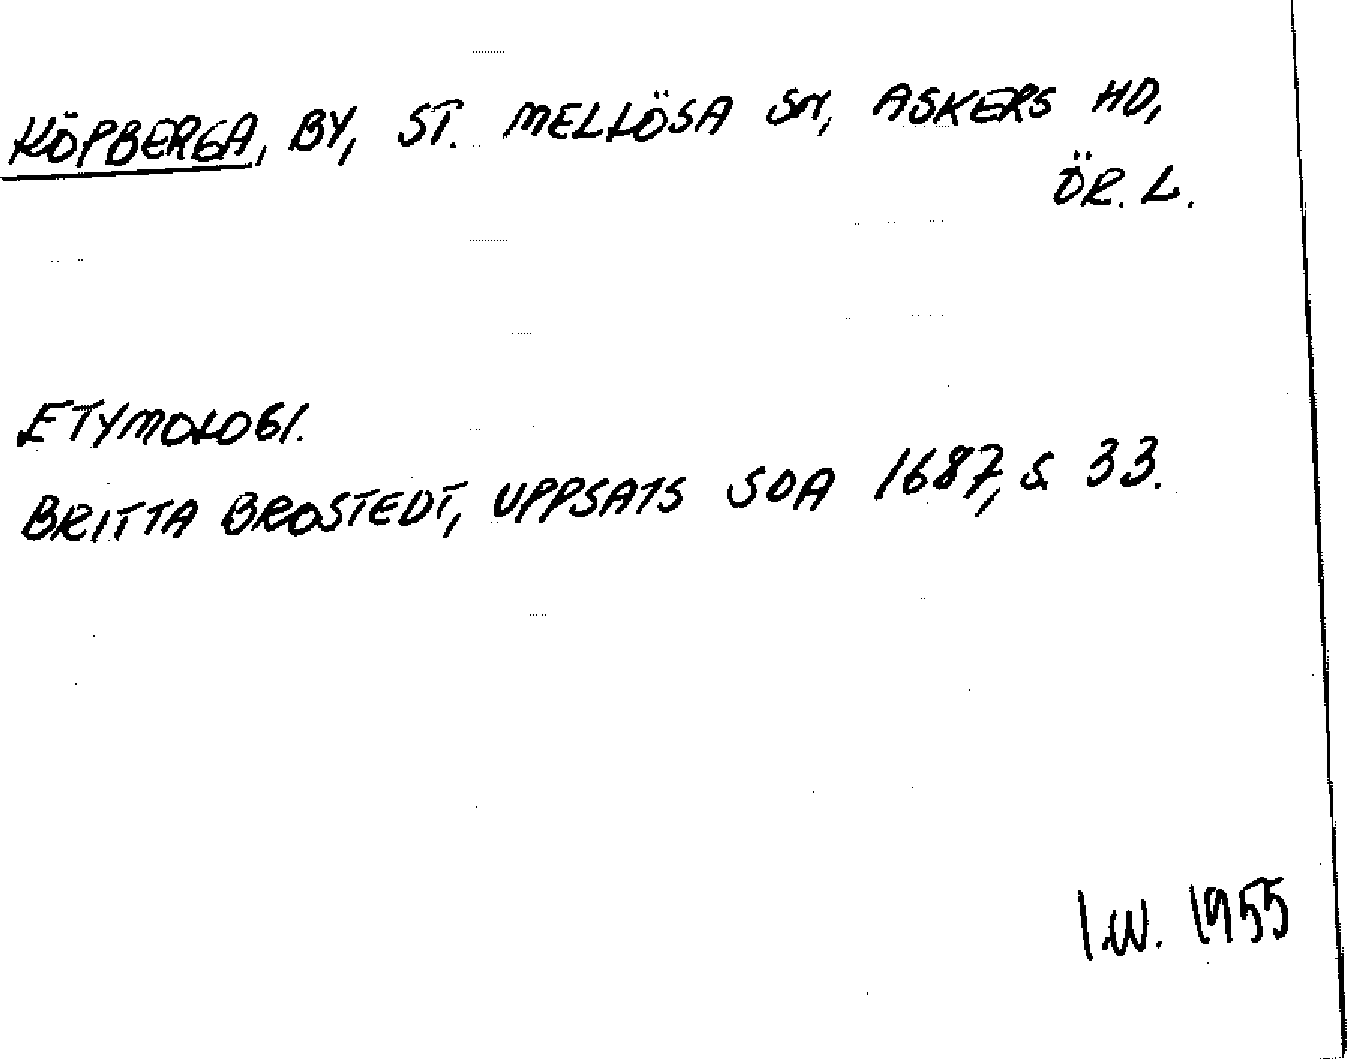 KÖPBERGA, BY, ST. MELLÖSA SN, ASKERS HD,
ÖR. L.
ETYMOLOGI.
BRITTA BROSTEDT, UPPSATS SOA 1687, S 33.
I.W. 1955